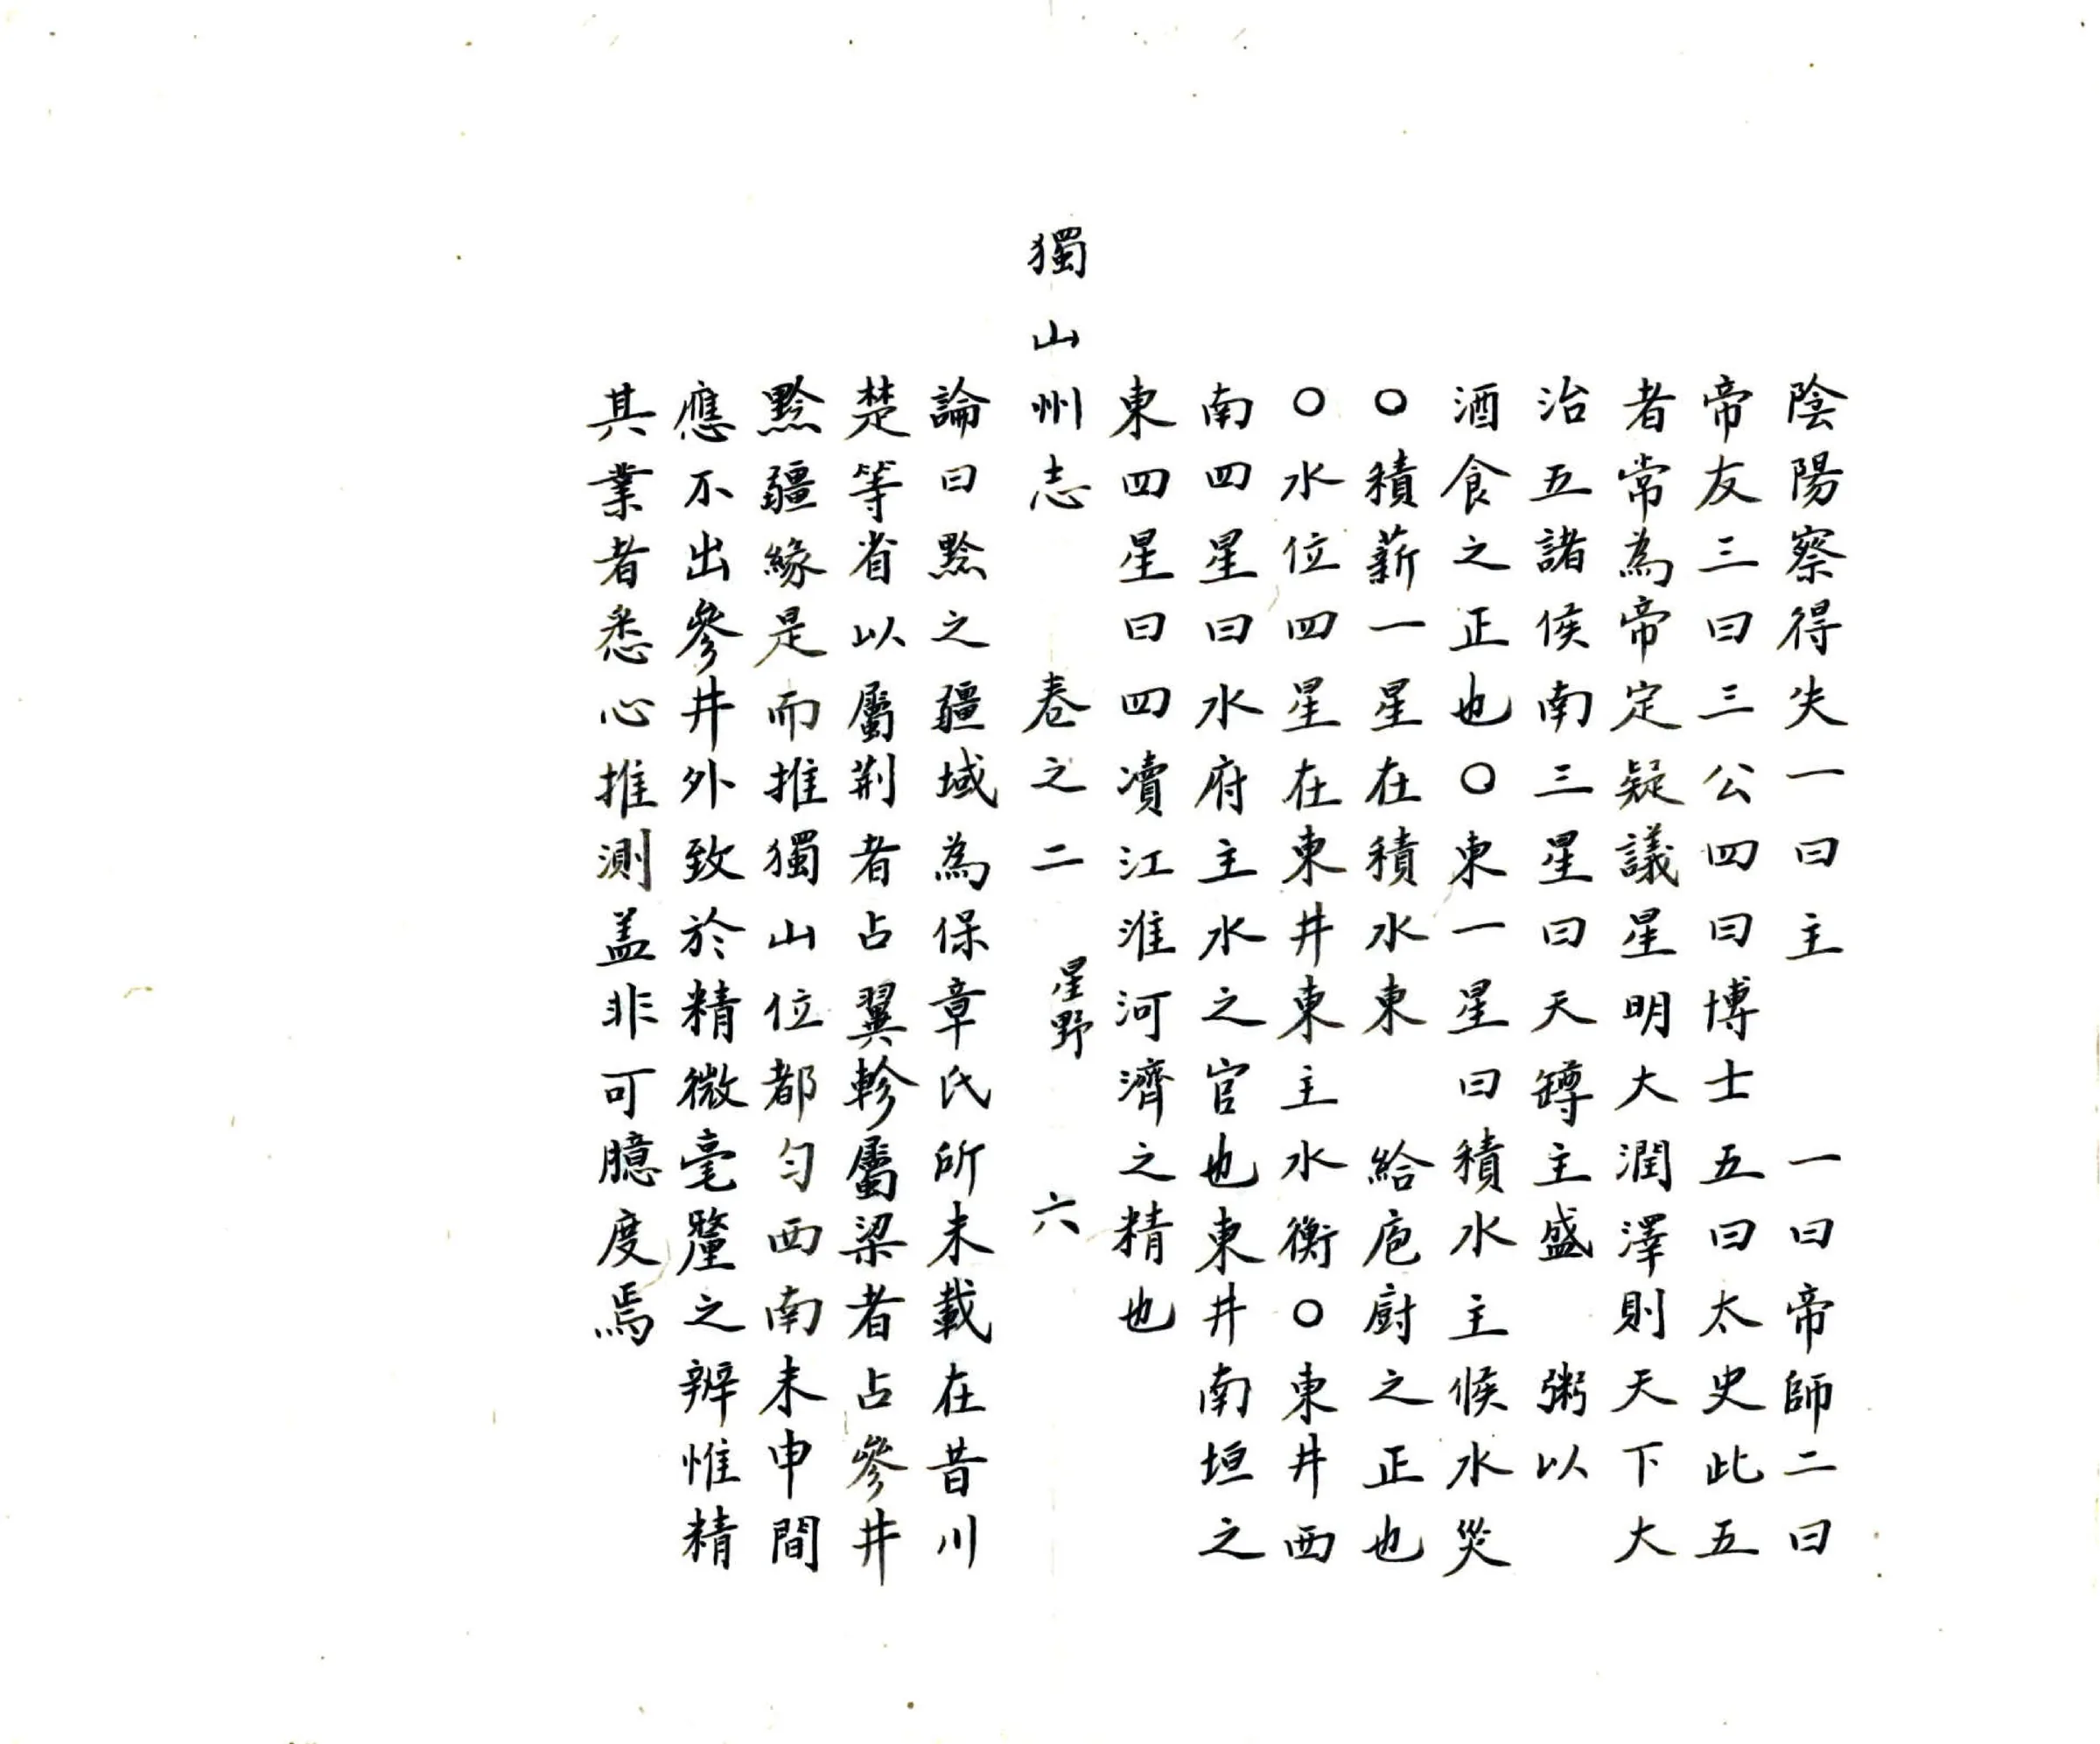 陰陽察得失一曰主　　一曰帝師二曰
帝友三曰三公四曰博士五曰太史此五
者常為帝定疑議星明大潤澤則天下大
治五諸侯南三星曰天罇主盛　粥以
酒食之正也○東一星曰積水主候水災
○積薪一星在積水東　給庖廚之正也
○水位四星在東井東主水衡○東井西
南四星曰水府主水之官也東井南垣之
東四星曰四瀆江淮河濟之精也
獨山州志　卷之二　星野　六
論曰黔之疆域為保章氏所未載在昔川
楚等省以屬荆者占翼軫屬梁者占參井
黔疆緣是而推獨山位都匀西南未申間
應不出參井外致於精微毫釐之辨惟精
其業者悉心推測盖非可臆度焉